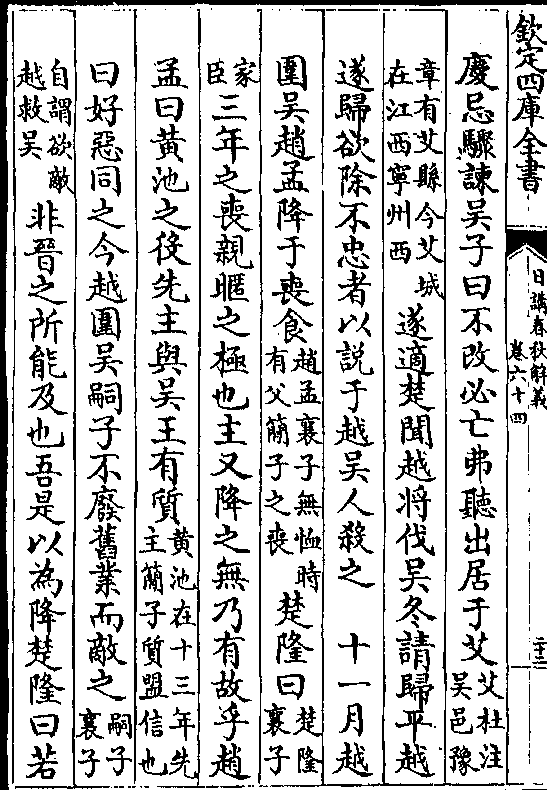 欽定四庫全書
日講春秋解義
卷六十四
二十三
慶忌驟諫吳子曰不改必亡弗聽出居于艾艾杜注吳邑豫
章有艾縣今艾城在江西寧州西遂適楚聞越将伐吳冬請歸平越
遂歸欲除不忠者以説于越吳人殺之 十一月越
圍吳趙孟降于喪食趙孟襄子無恤時有父簡子之喪楚隆曰楚隆襄子
家臣三年之喪親暱之極也主又降之無乃有故乎趙
孟曰黃池之役先主與吳王有質黃池在十三年先主簡子質盟信也
曰好惡同之今越圍吳嗣子不廢舊業而敵之嗣子襄子
自謂欲敵越救吳非晉之所能及也吾是以為降楚隆曰若